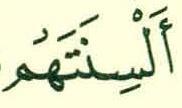 أَلْسِنَتَهُم